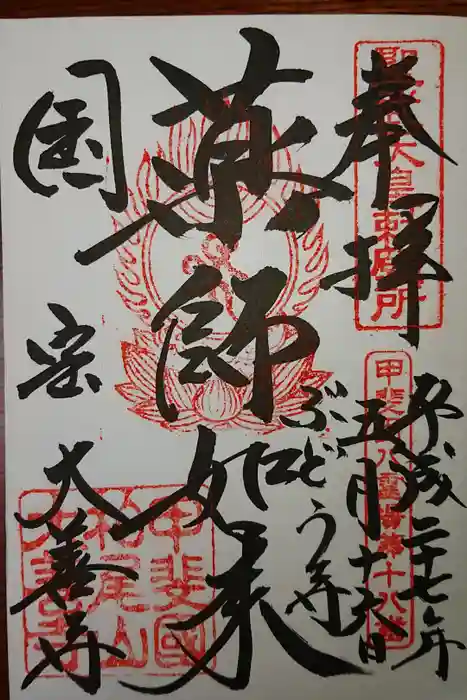 聖武天皇勅願所
奉拝
甲斐百八霊場第十八番
平成二十七年
五月十六日
薬師如来
ぶどう寺
国宝 大善寺
甲斐國
柏尾山
大善寺